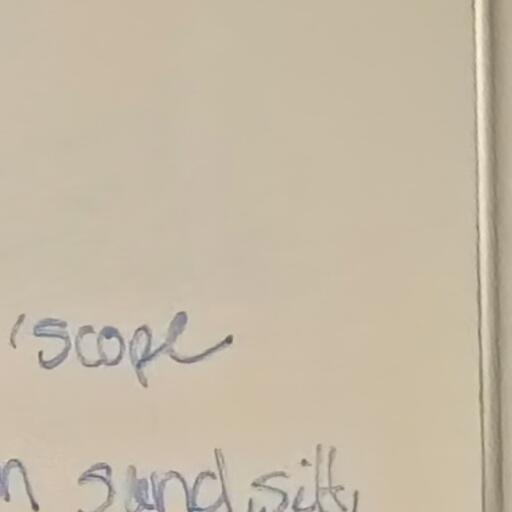 'scope
n sand, silt,